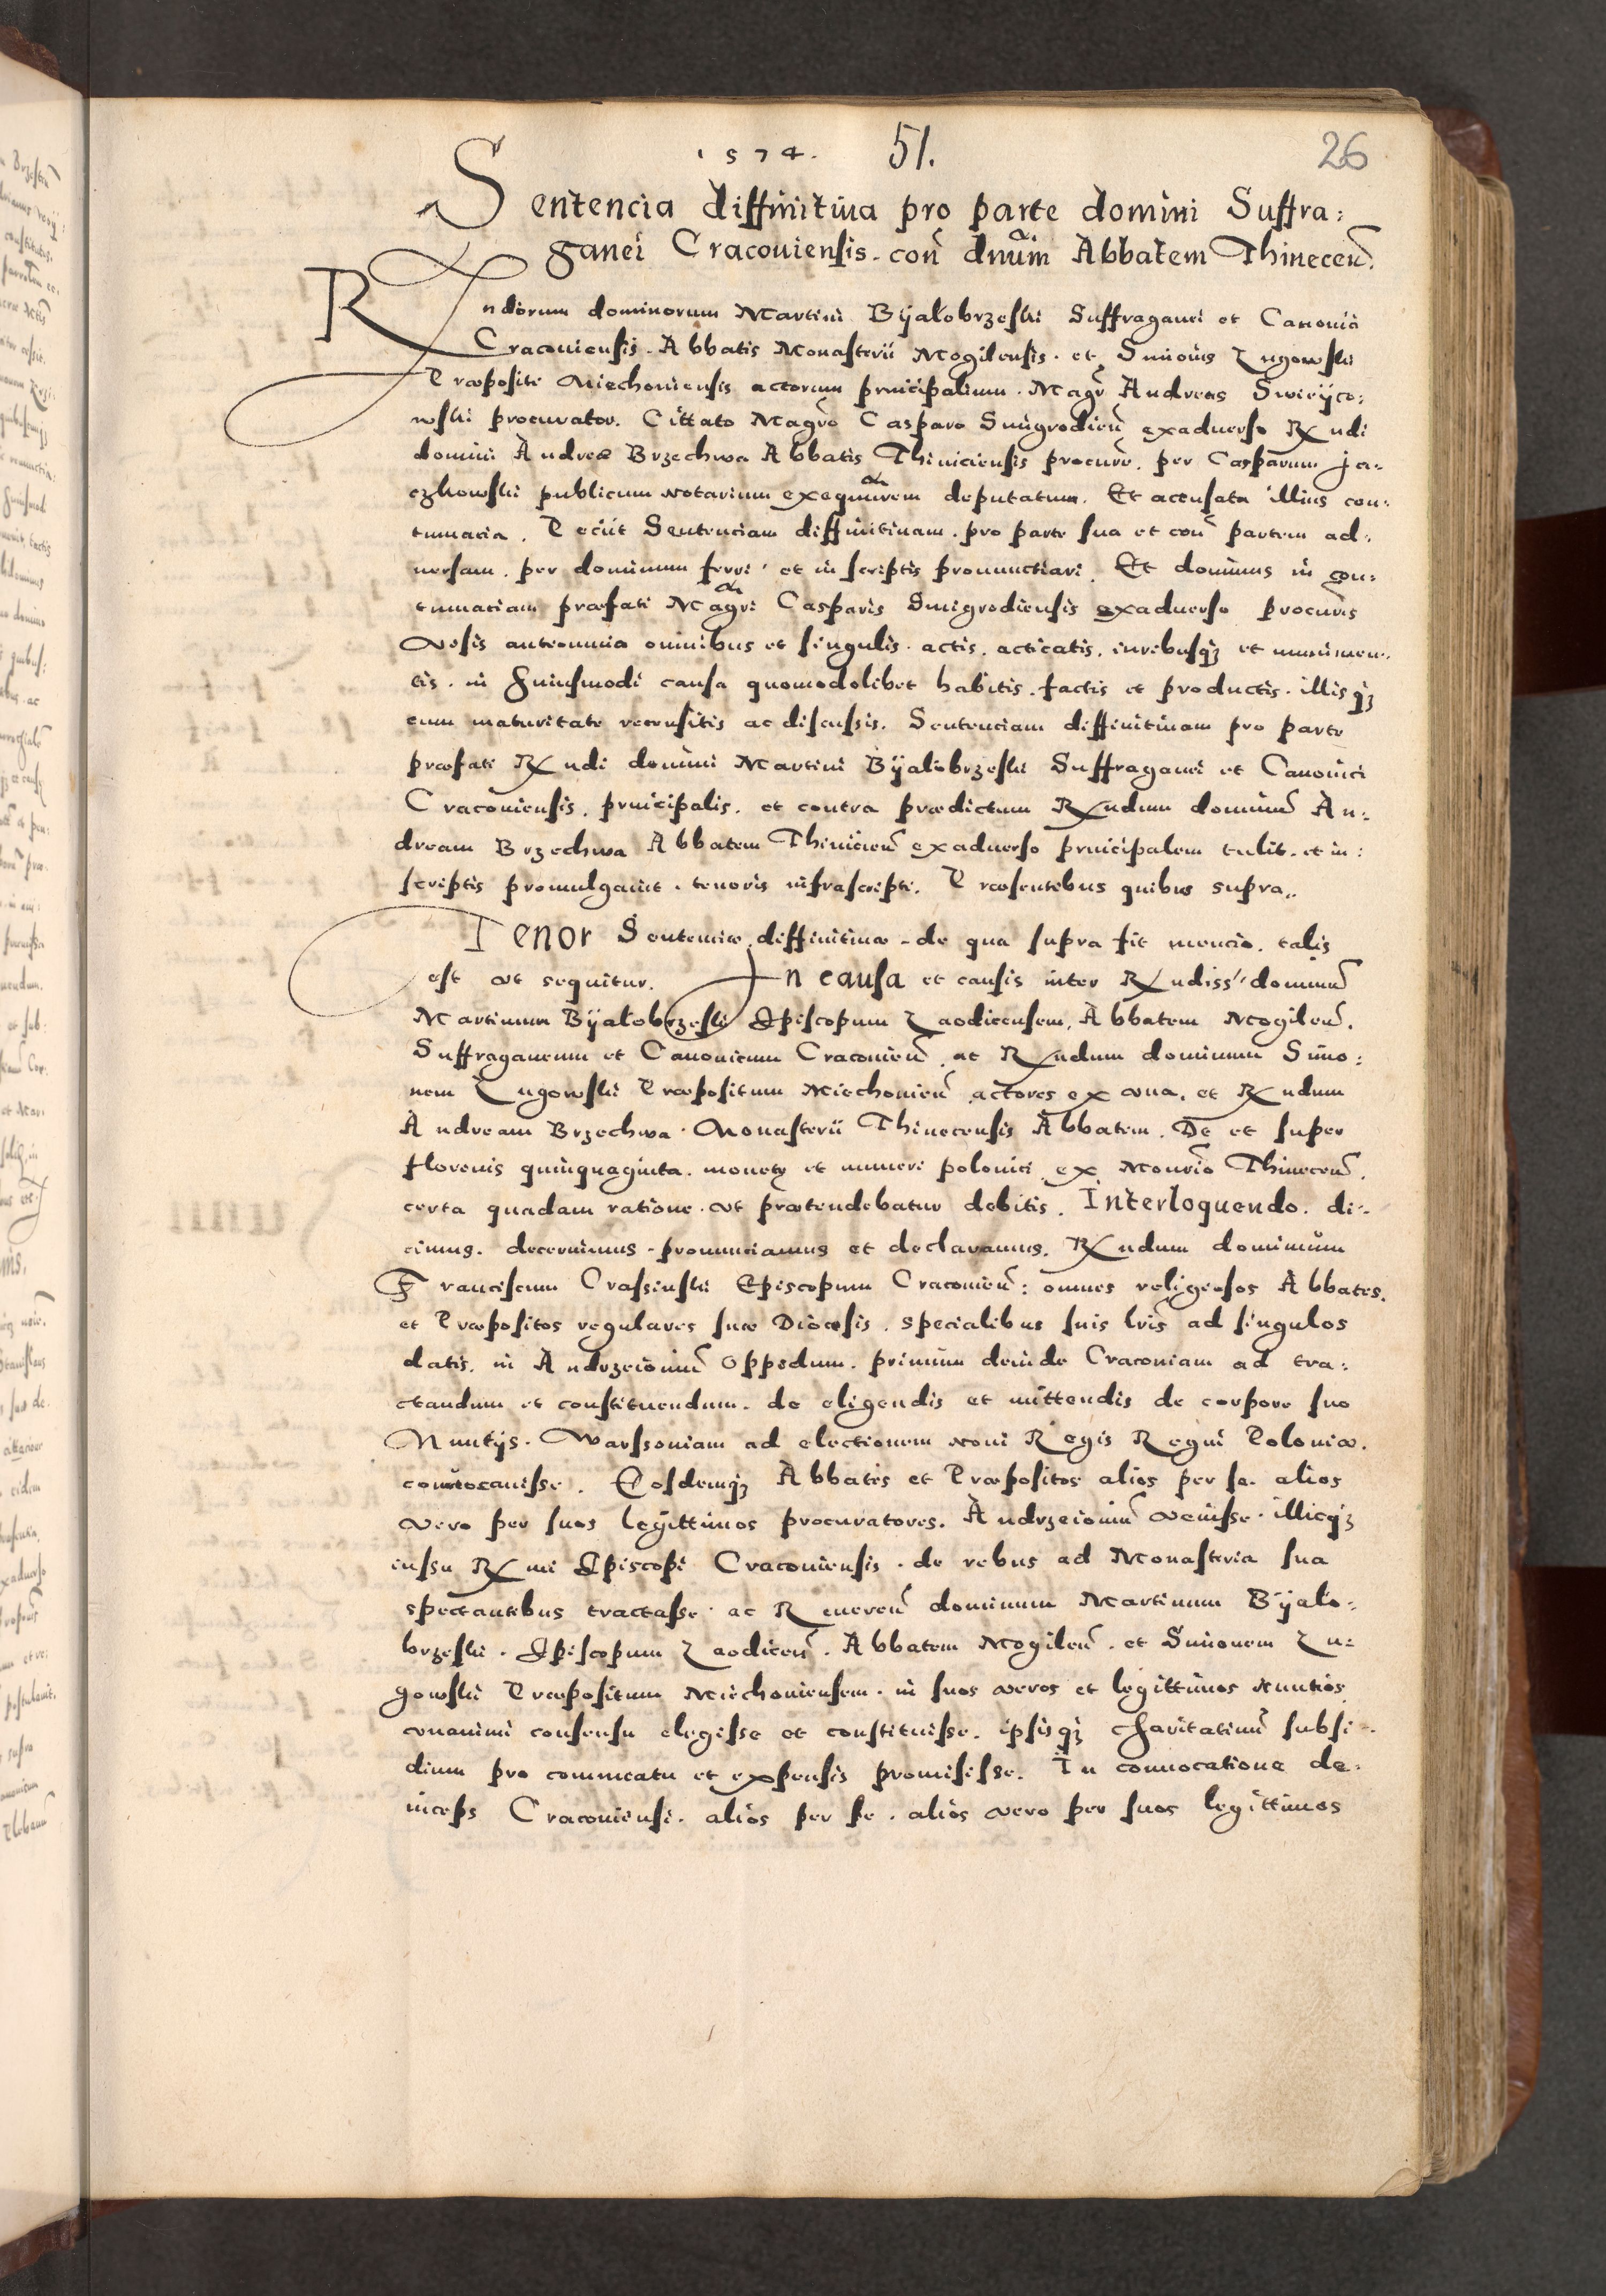 1574. 51. 26
Sentencia diffinitiua pro parte domini Suffra:
ganei Cracouiensis. con̄ dnūm Abbatem Thinecen̄.
Rndorum dominorum Martini Byalobrzeski Suffraganei et Canonici
Cracouiensis. Abbatis Monasterii Mogilensis. et Simonis Lugowski
Præpositi Miechouiensis actorum principalium. Magr̄ Andreas Swieyco:
wski procurator. Cittato Magr̄o Casparo Smigrodien̄ exaduerso Rndi
domini Andreæ Brzechwa Abbatis Thiniciensis procurr̄e. per Casparum Ja-
czkowski publicum notarium exequutorem deputatum. Et accusata illius con:
tumatia. Peciit Sentenciam diffinitiuam. pro parte sua et con̄ partem ad:
uersam. per dominum ferri et in scriptis pronunctiari. Et dominus in con:
tumatiam præfati Magri Casparis Smigrodiensis exaduerso procur̄is
visis anteomnia omnibus et singulis. actis. acticatis. iuribusq₃ et munimen:
tis. in huiusmodi causa quomodolibet habitis. factis et productis. illisq₃
cum maturitate recensitis ac discussis. Sentenciam diffinitiuam pro parte
præfati Rndi domini Martini Byalobrzeski Suffraganei et Canonici
Cracouiensis. principalis. et contra prædictum Rndum dominū An:
dream Brzechwa Abbatem Thinicien̄ exaduerso principalem tulit. et in:
scriptis promulgauit. tenoris infrascripti. Præsentibus quibus supra.
Tenor Sentenciæ diffinitiuæ. de qua supra fit mencio. talis
est vt sequitur. In causa et causis inter Rndiss: dominū
Martinum Byalobrzeski Episcopum Laodicensem, Abbatem Mogilen̄.
Suffraganeum et Canonicum Cracouien̄. ac Rndum dominum Simo:
nem Lugowski Præpositum Miechouien̄ actores ex vna. et Rndum
Andream Brzechwa. Monasterii Thinecensis Abbatem. De et super
florenis quinquaginta. monetę et numeri polonici ex Monr̄io Thinecen̄.
certa quadam ratione. vt prætendebatur debitis. Interloquendo. di:
cimus. decernimus. pronunciamus et declaramus. Rndum dominum
Franciscum Crassinski Episcopum Cracouien̄: omnes religiosos Abbates.
et Præpositos regulares suæ Diocesis. specialibus suis lr̄is ad singulos
datis. in Andrzeiouiū oppidum. primum deinde Cracouiam ad tra:
ctandum et constituendum. de eligendis et mittendis de corpore suo
Nuntijs. Warssouiam ad electionem noui Regis Regni Poloniæ.
conuocauisse. Eosdemq₃ Abbates et Præpositos alios per se. alios
vero per suos legittimos procuratores. Andrzeiouiū venisse. illicq₃
iussu Rmi Episcopi Cracouiensis. de rebus ad Monasteria sua
spectantibus tractasse. ac Reueren̄ dominum Martinum Byalo:
brzeski. Episcopum Laodicen̄. Abbatem Mogilen̄. et Simonem Lu:
gowski Præpositum Miechouiensem. in suos veros et legittimos nuntios
vnanimi consensu elegisse et constituisse. ipsisq₃ charitatiuū subsi:
dium pro commeatu et expensis promisisse. In conuocatione de:
inceps Cracouiensi. alios per se. alios vero per suos legittimos